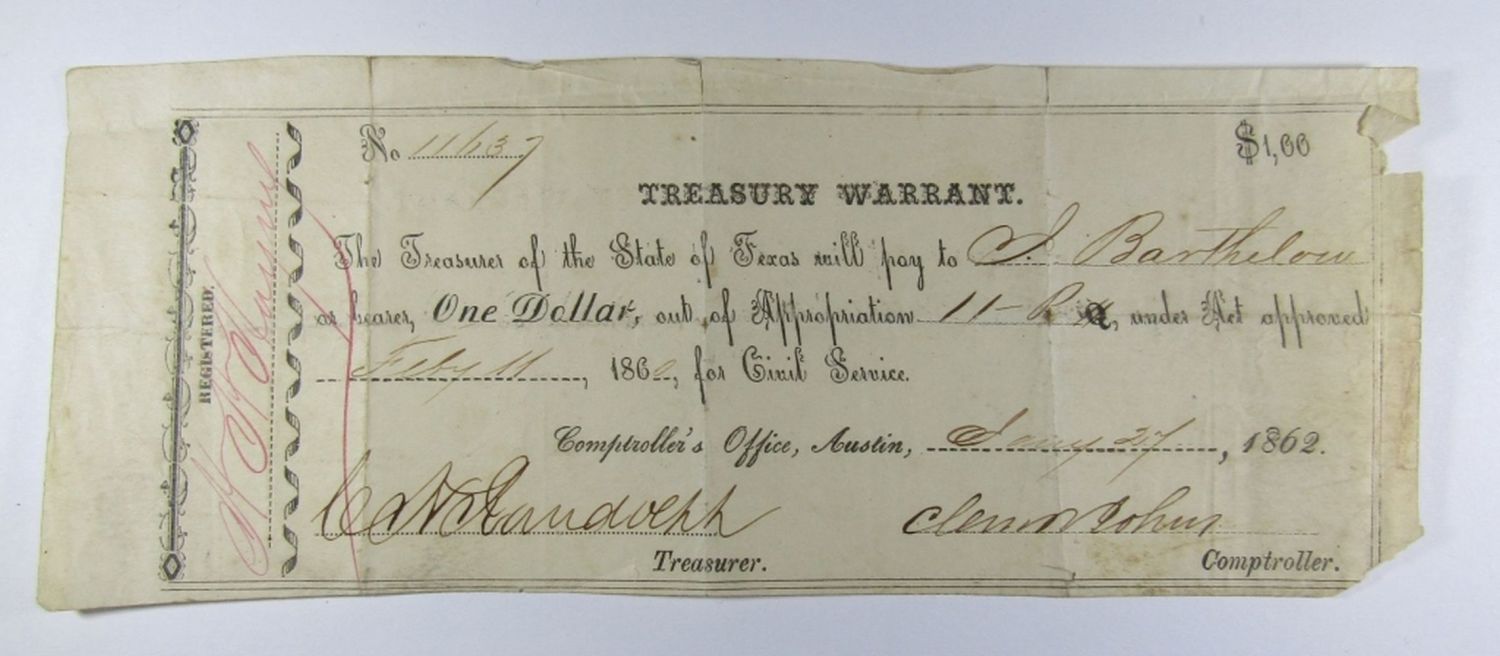 No 11637
$1,00
TREASURY WARRANT.
The Treasurer of the State of Texas will pay to S. Barthelow
or bearer, One Dollar, out of Appropriation 11-B a, under Act approved
Feby 11, 186 , for Civil Service.
Comptroller's Office, Austin, Jany 27, 1862.
C H Randolph
Clem R Johns
Treasurer.
Comptroller.
REGISTERED.